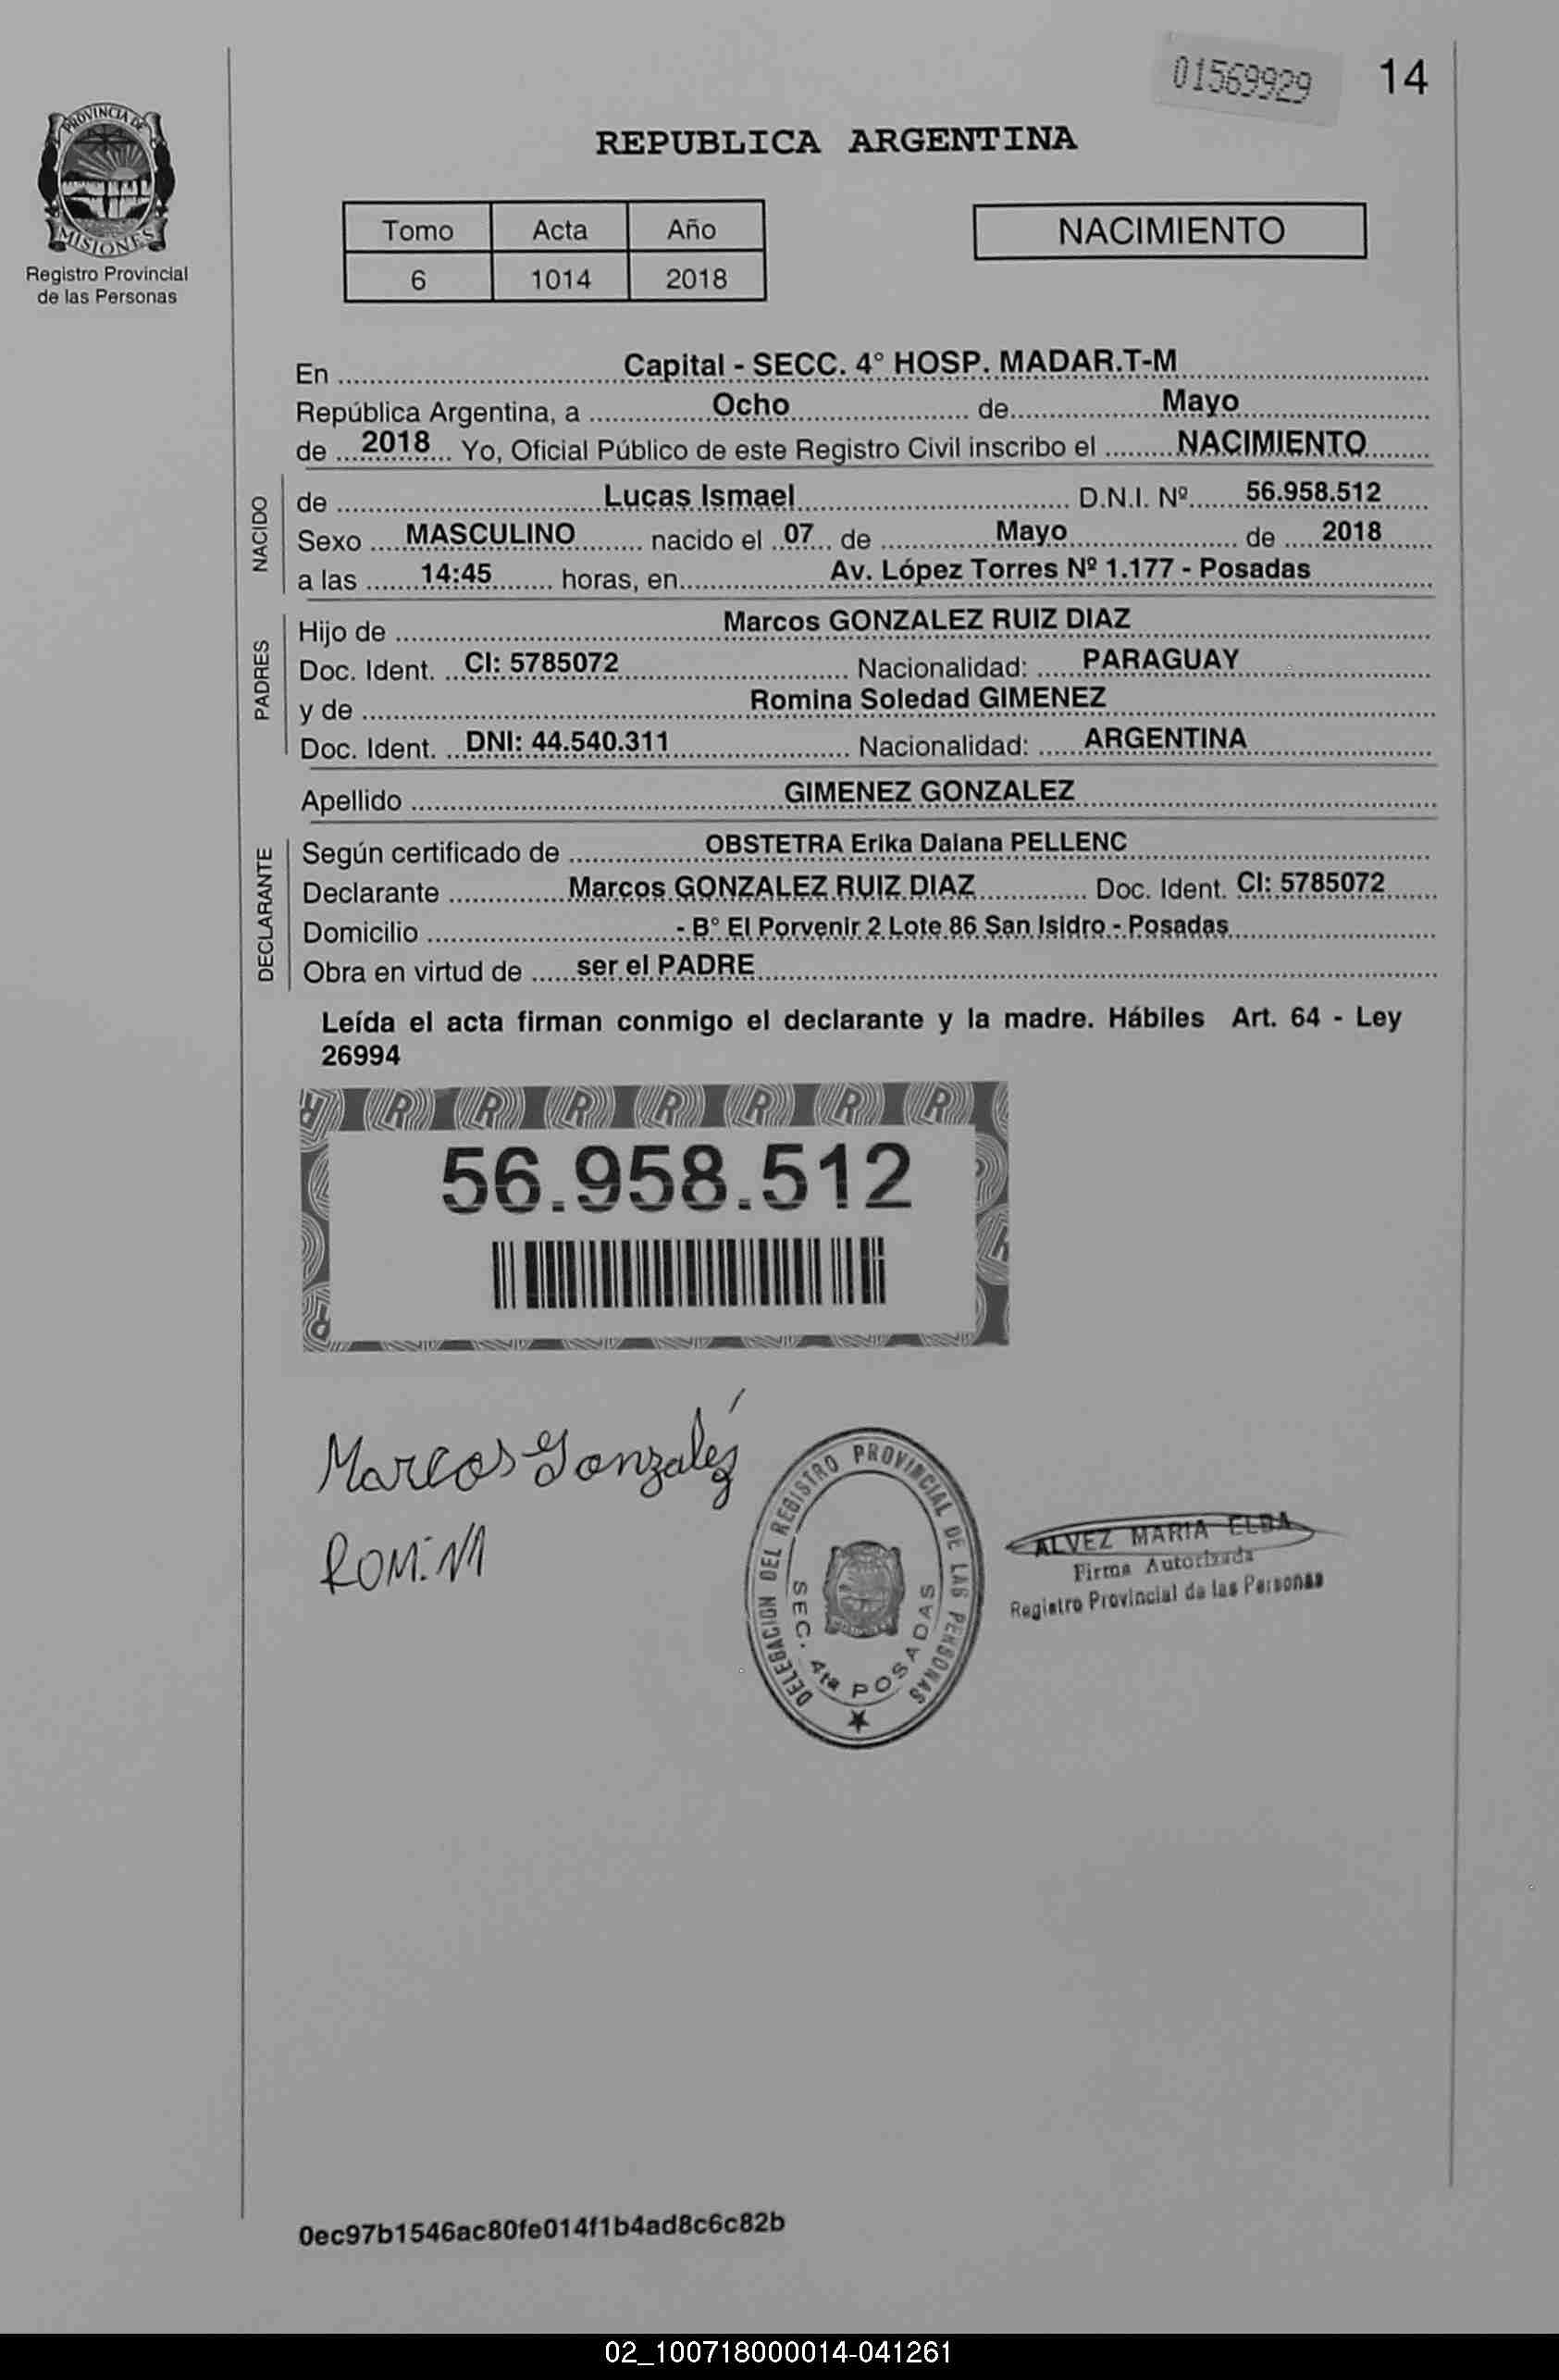 01569929
14
PROVINCIA DE
MISIONES
Registro Provincial
de las Personas
REPUBLICA ARGENTINA
Tomo Acta Año
6 1014 2018
NACIMIENTO
En Capital - SECC. 4° HOSP. MADAR.T-M
República Argentina, a Ocho de Mayo
de 2018 Yo, Oficial Público de este Registro Civil inscribo el NACIMIENTO
NACIDO
de Lucas Ismael D.N.I. Nº 56.958.512
Sexo MASCULINO nacido el 07 de Mayo de 2018
a las 14:45 horas, en Av. López Torres Nº 1.177 - Posadas
PADRES
Hijo de Marcos GONZALEZ RUIZ DIAZ
Doc. Ident. CI: 5785072 Nacionalidad: PARAGUAY
y de Romina Soledad GIMENEZ
Doc. Ident. DNI: 44.540.311 Nacionalidad: ARGENTINA
Apellido GIMENEZ GONZALEZ
DECLARANTE
Según certificado de OBSTETRA Erika Daiana PELLENC
Declarante Marcos GONZALEZ RUIZ DIAZ Doc. Ident. CI: 5785072
Domicilio - B° El Porvenir 2 Lote 86 San Isidro - Posadas
Obra en virtud de ser el PADRE
Leída el acta firman conmigo el declarante y la madre. Hábiles Art. 64 - Ley
26994
56.958.512
Marcos Gonzalez
DELEGACION DEL REGISTRO PROVINCIAL DE LAS PERSONAS
SEC. 4ta POSADAS
ALVEZ MARIA ELBA
Firma Autorizada
Registro Provincial de las Personas
0ec97b1546ac80fe014f1b4ad8c6c82b
02_100718000014-041261